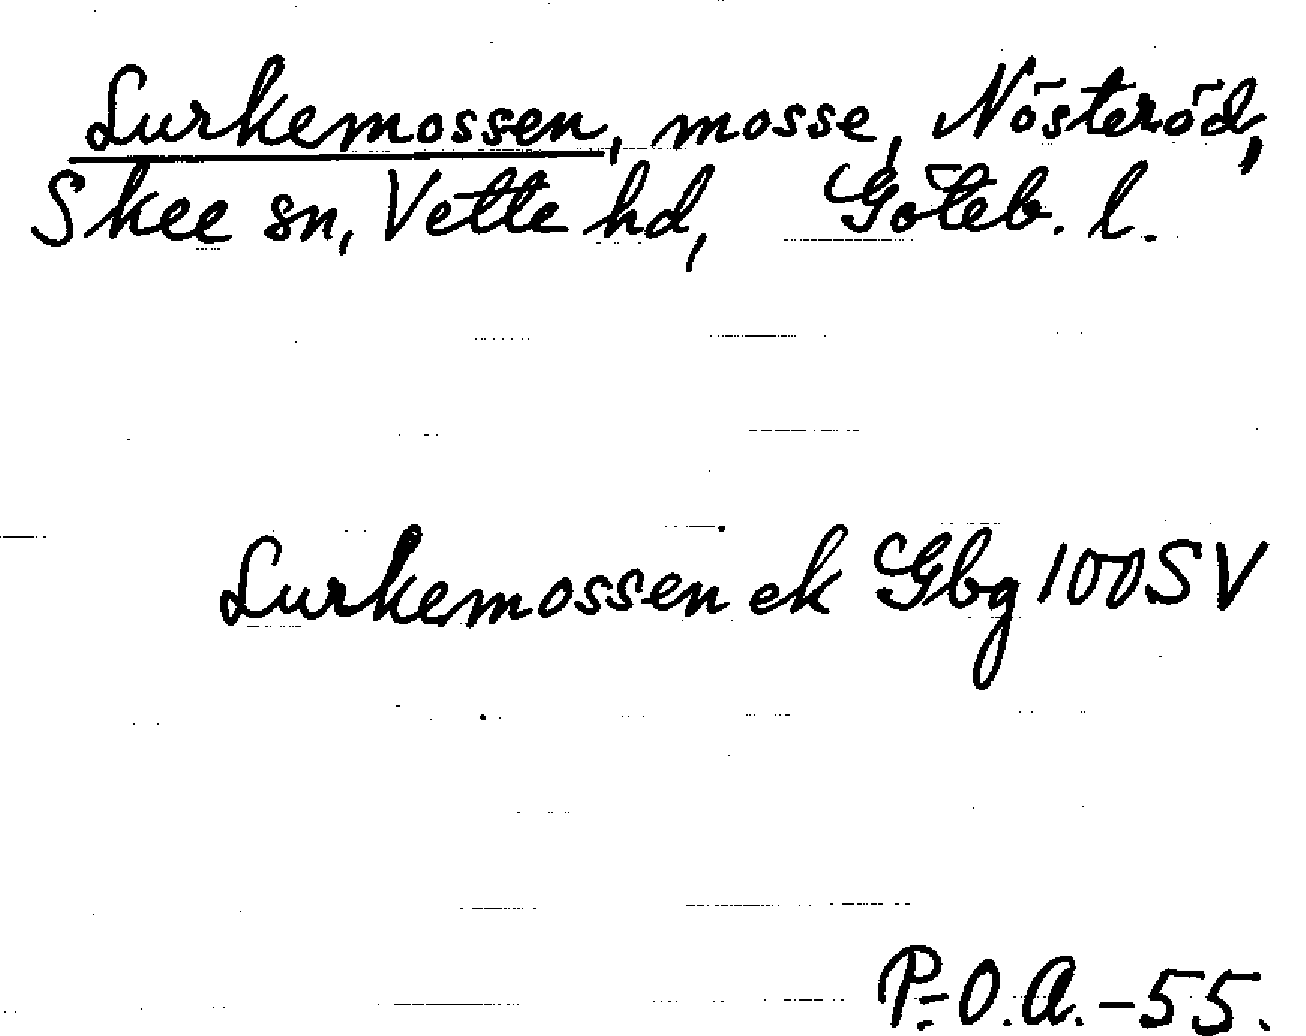 Lurkemossen, mosse, Nösteröd,
Skee sn, Vette hd, Göteb. l.
Lurkemossen ek Gbg 100 SV
P.-O.A.-55.